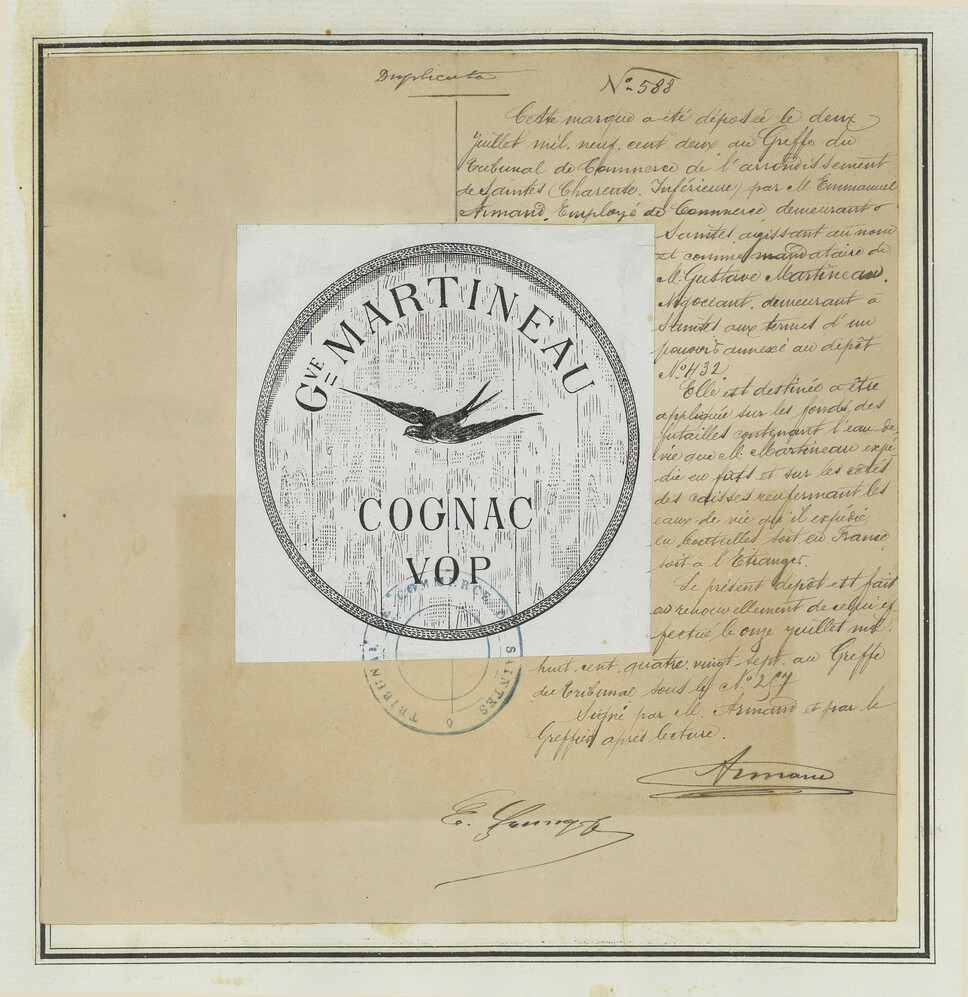 Duplicata
N° 588
Cette marque a été déposée le deux
Juillet mil. neuf. cent deux au Greffe du
Tribunal de Commerce de l'arrondissement
de Saintes (Charente. Inférieure) par M. Emmanuel
Armand, Employé de Commerce demeurant à
Saintes, agissant au nom
et comme mandataire de
M. Gustave Martineau,
Négociant, demeurant à
Saintes aux termes d'un
pouvoir annexé au dépôt
N° 432
Elle est destinée à être
appliquée sur les fonds des
futailles contenant l'eau-de-
vie que M. Martineau expé-
die en fûts et sur les côtés
des caisses renfermant les
eaux-de-vie qu'il expédie
en bouteilles soit en France
soit à l'Étranger.
Le présent dépôt est fait
en renouvellement de celui ef
fectué le onze juillet mil.
huit. cent. quatre. vingt. sept. au Greffe
du Tribunal sous le N°
Signé par M. Armand et par le
Greffier après lecture.
Armand
E.
Gve MARTINEAU
COGNAC
VOP
TRIBUNAL DE COMMERCE DE SAINTES